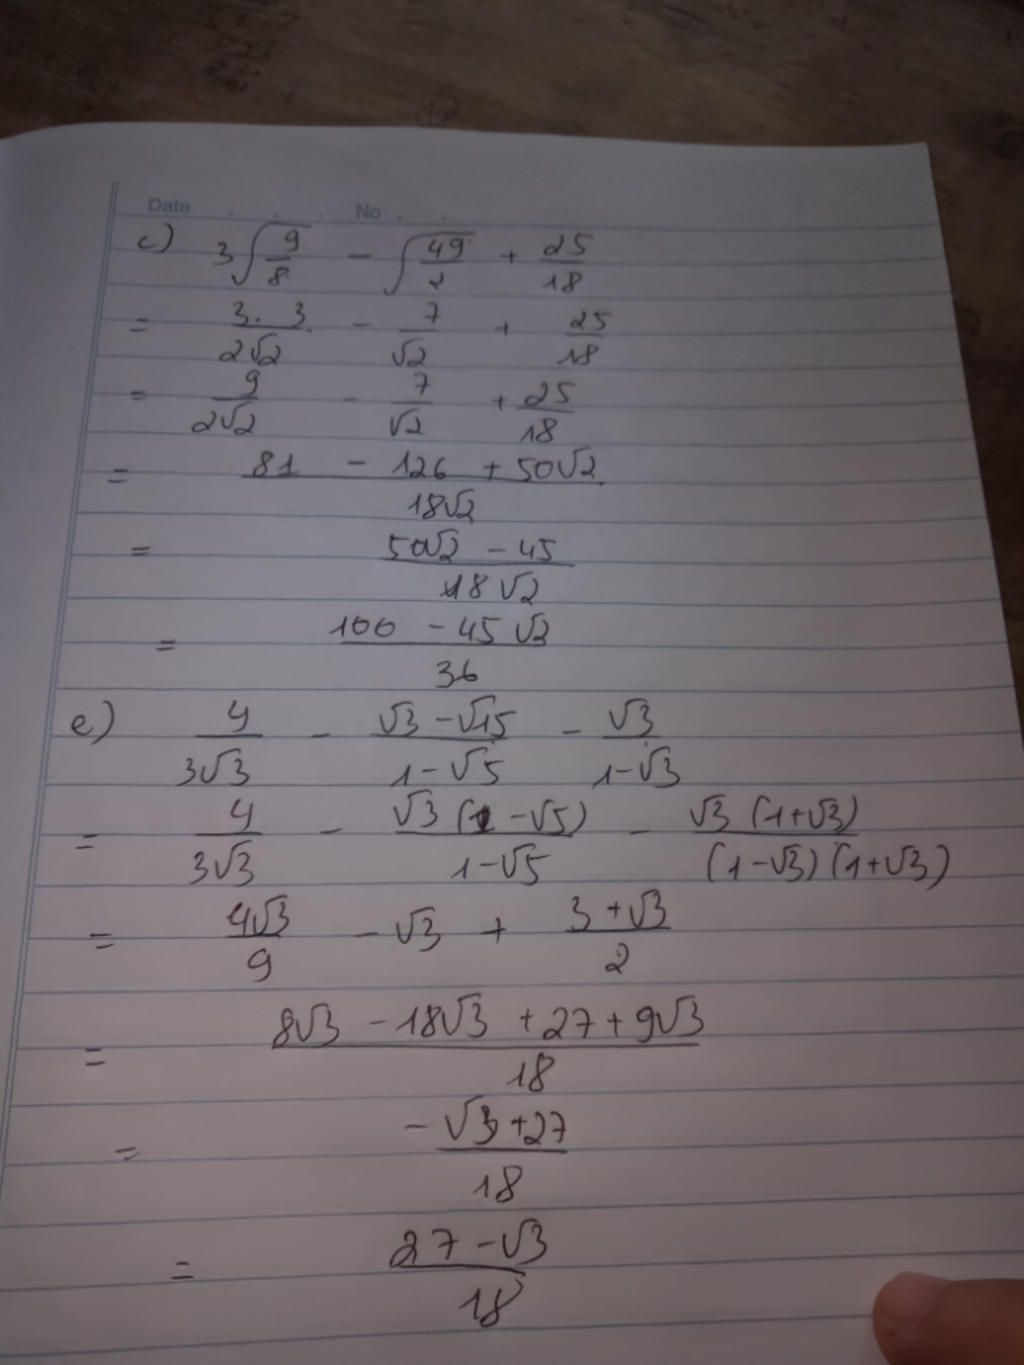 Date . . . No . .
c) 3√(9/8) - √(49/2) + 25/18
= 3. 3/2√2 - 7/√2 + 25/18
= 9/2√2 - 7/√2 + 25/18
= (81 - 126 + 50√2)/18√2
= (50√2 - 45)/18√2
= (100 - 45√2)/36
e) 4/3√3 - (√3 - √15)/(1 - √5) - √3/(1 - √3)
= 4/3√3 - √3(1 - √5)/(1 - √5) - √3(1 + √3)/(1 - √3)(1 + √3)
= 4√3/9 - √3 + (3 + √3)/2
= (8√3 - 18√3 + 27 + 9√3)/18
= (-√3 + 27)/18
= (27 - √3)/18